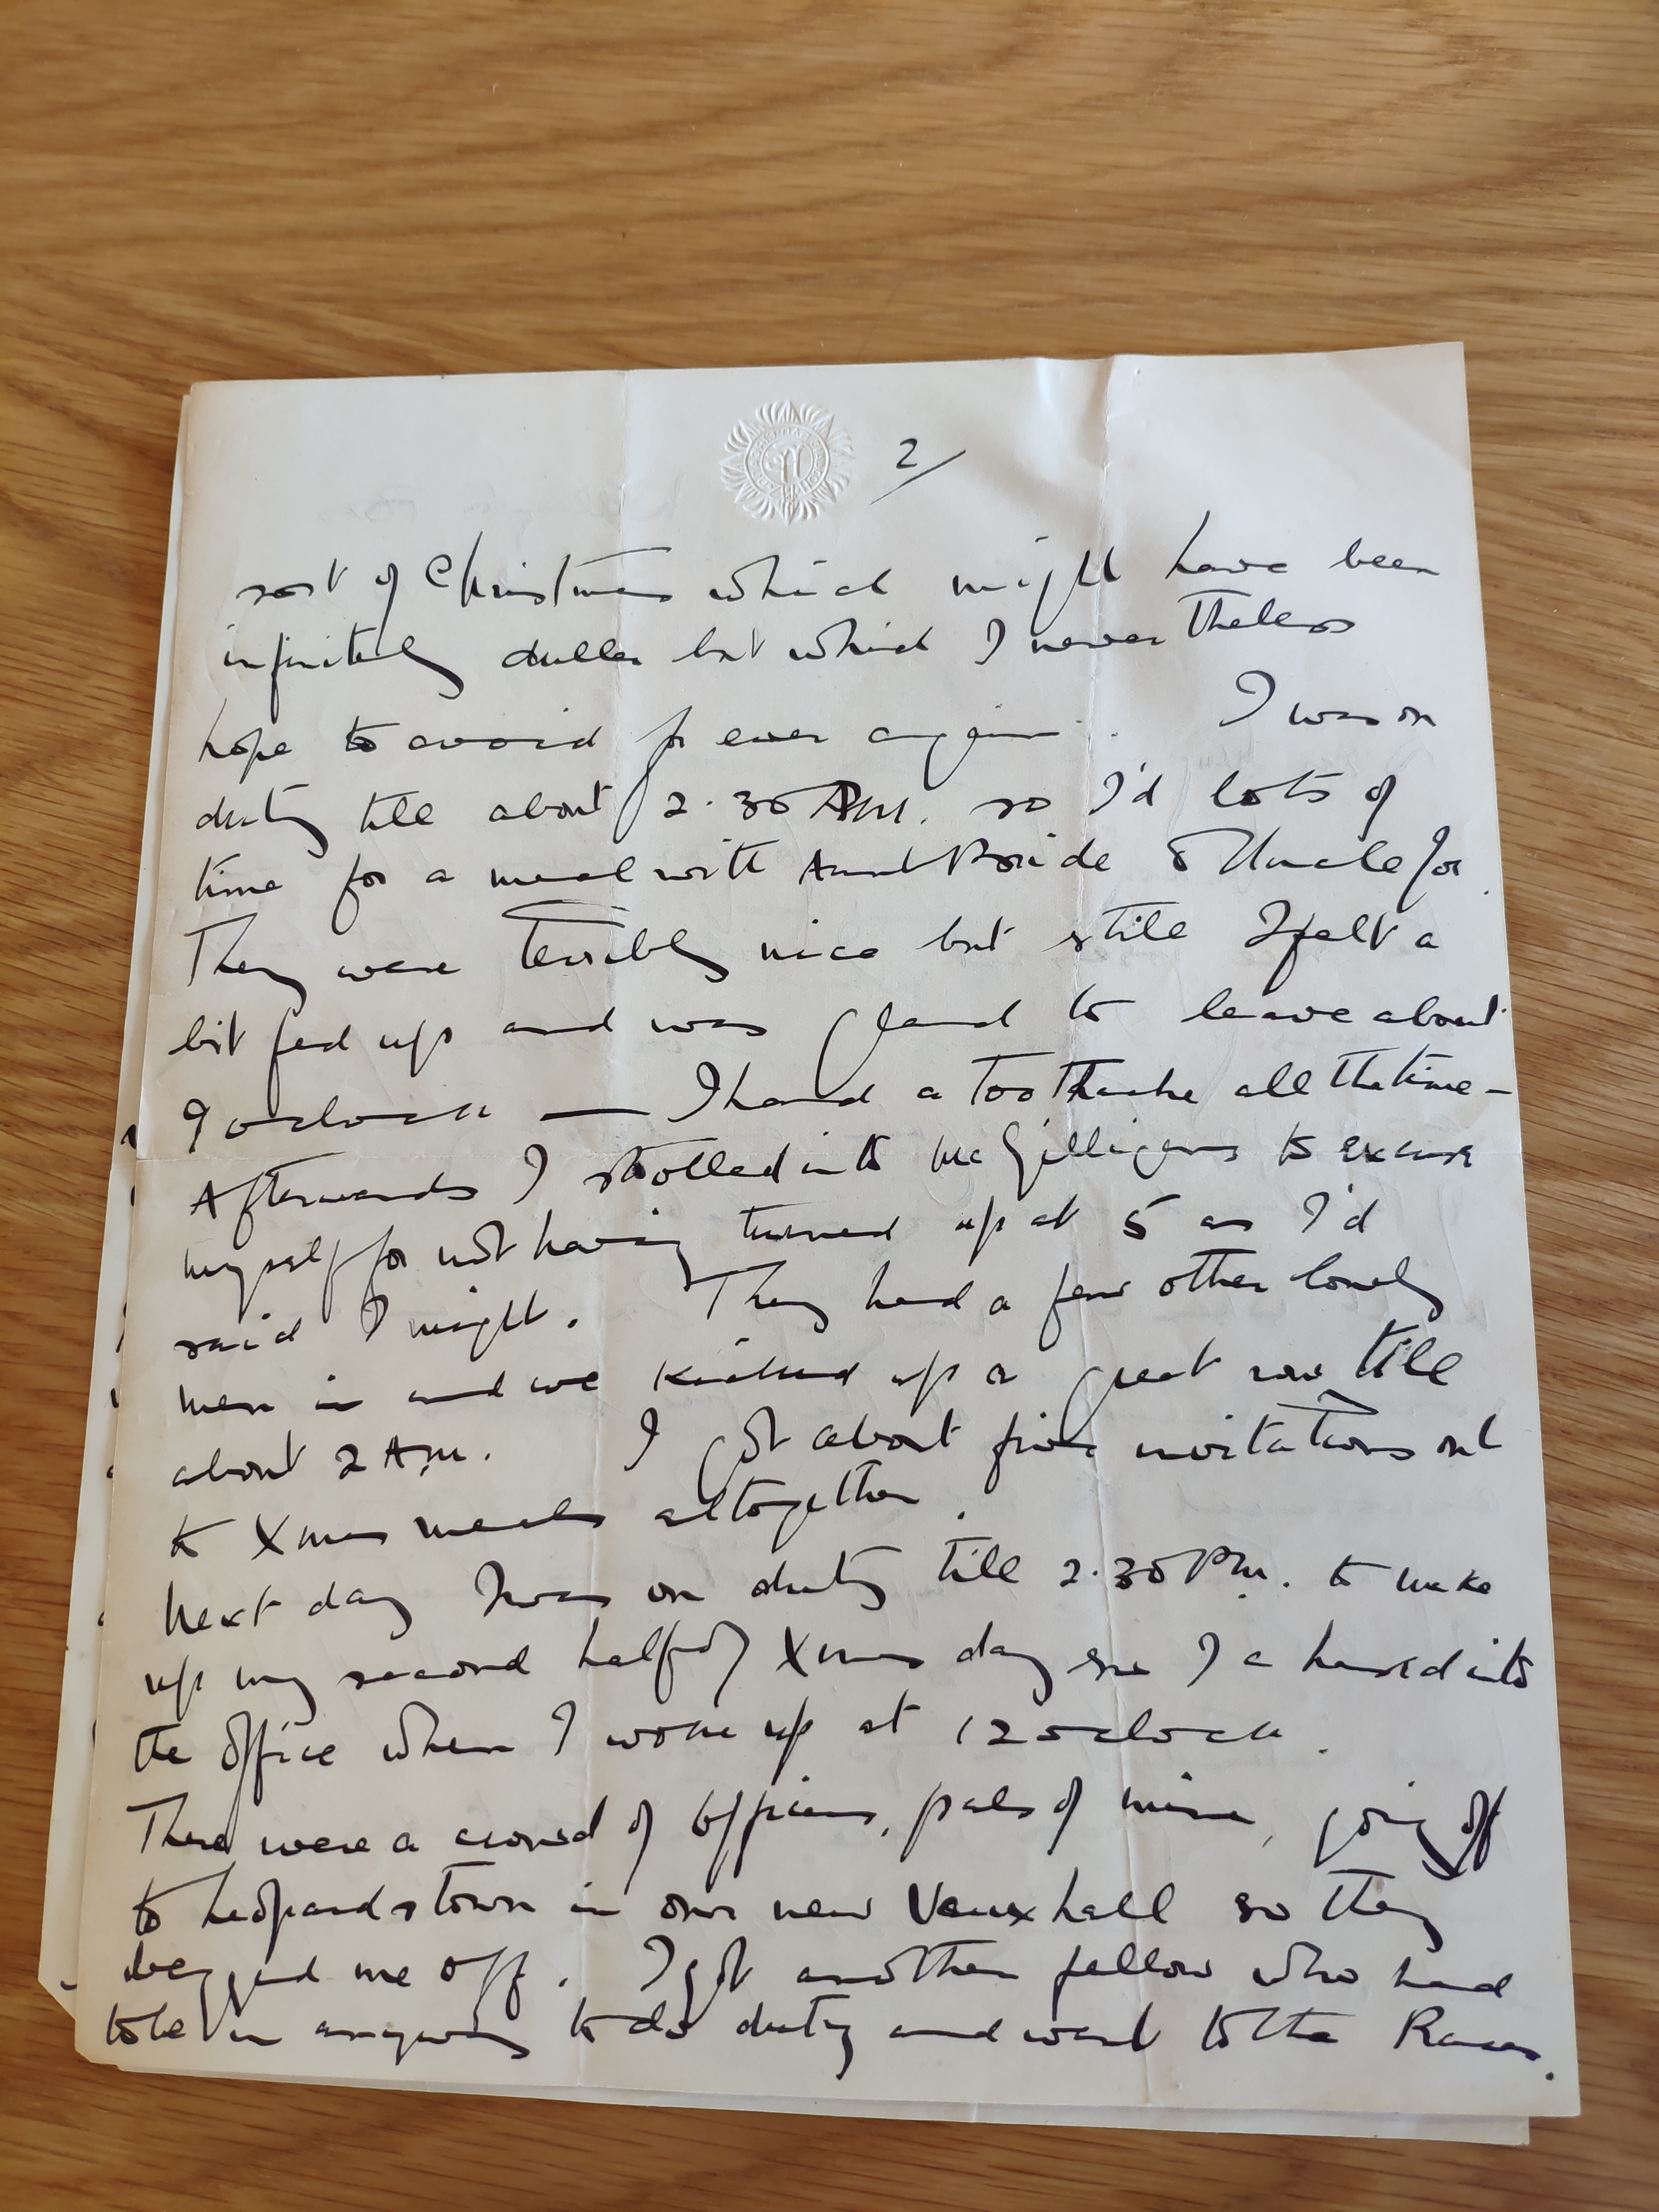 2/
sort of Christmas which might have been
infinitely duller but which I never theless
hope to avoid for ever again. I was on
duty till about 2.30 PM. so I'd lots of
time for a meal with Aunt Bride & Uncle Joe.
They were terribly nice but still I felt a
bit fed up and was glad to leave about
9 oclock — I had a toothache all the time –
Afterwards I strolled into McGilligans to excuse
myself for not having turned up at 5 as I'd
said I might. They had a few other lonely
men in and we kicked up a great row till
about 2 AM. I got about five invitations out
to Xmas meals altogether.
Next day I was on duty till 2.30 PM. to make
up my second half of Xmas day so I chased into
the office when I woke up at 12 oclock.
There were a crowd of officers, pals of mine, going off
to Leopardstown in our new Vauxhall so they
begged me off. I got another fellow who had
to be in anyway to do duty and went to the Races.